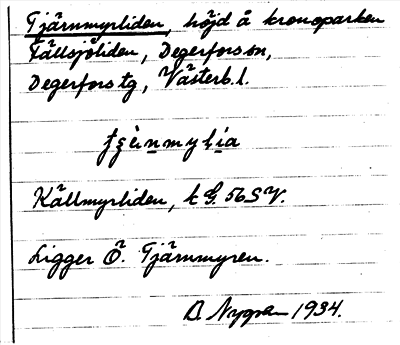 Tjärnmyrliden, höjd å kronoparken
Fällsjöliden, Degerfors sn,
Degerfors tg, Västerb. l.
Källmyrliden, k G. 56 SV.
Ligger Ö. Tjärnmyren.
D. Nygren 1934.